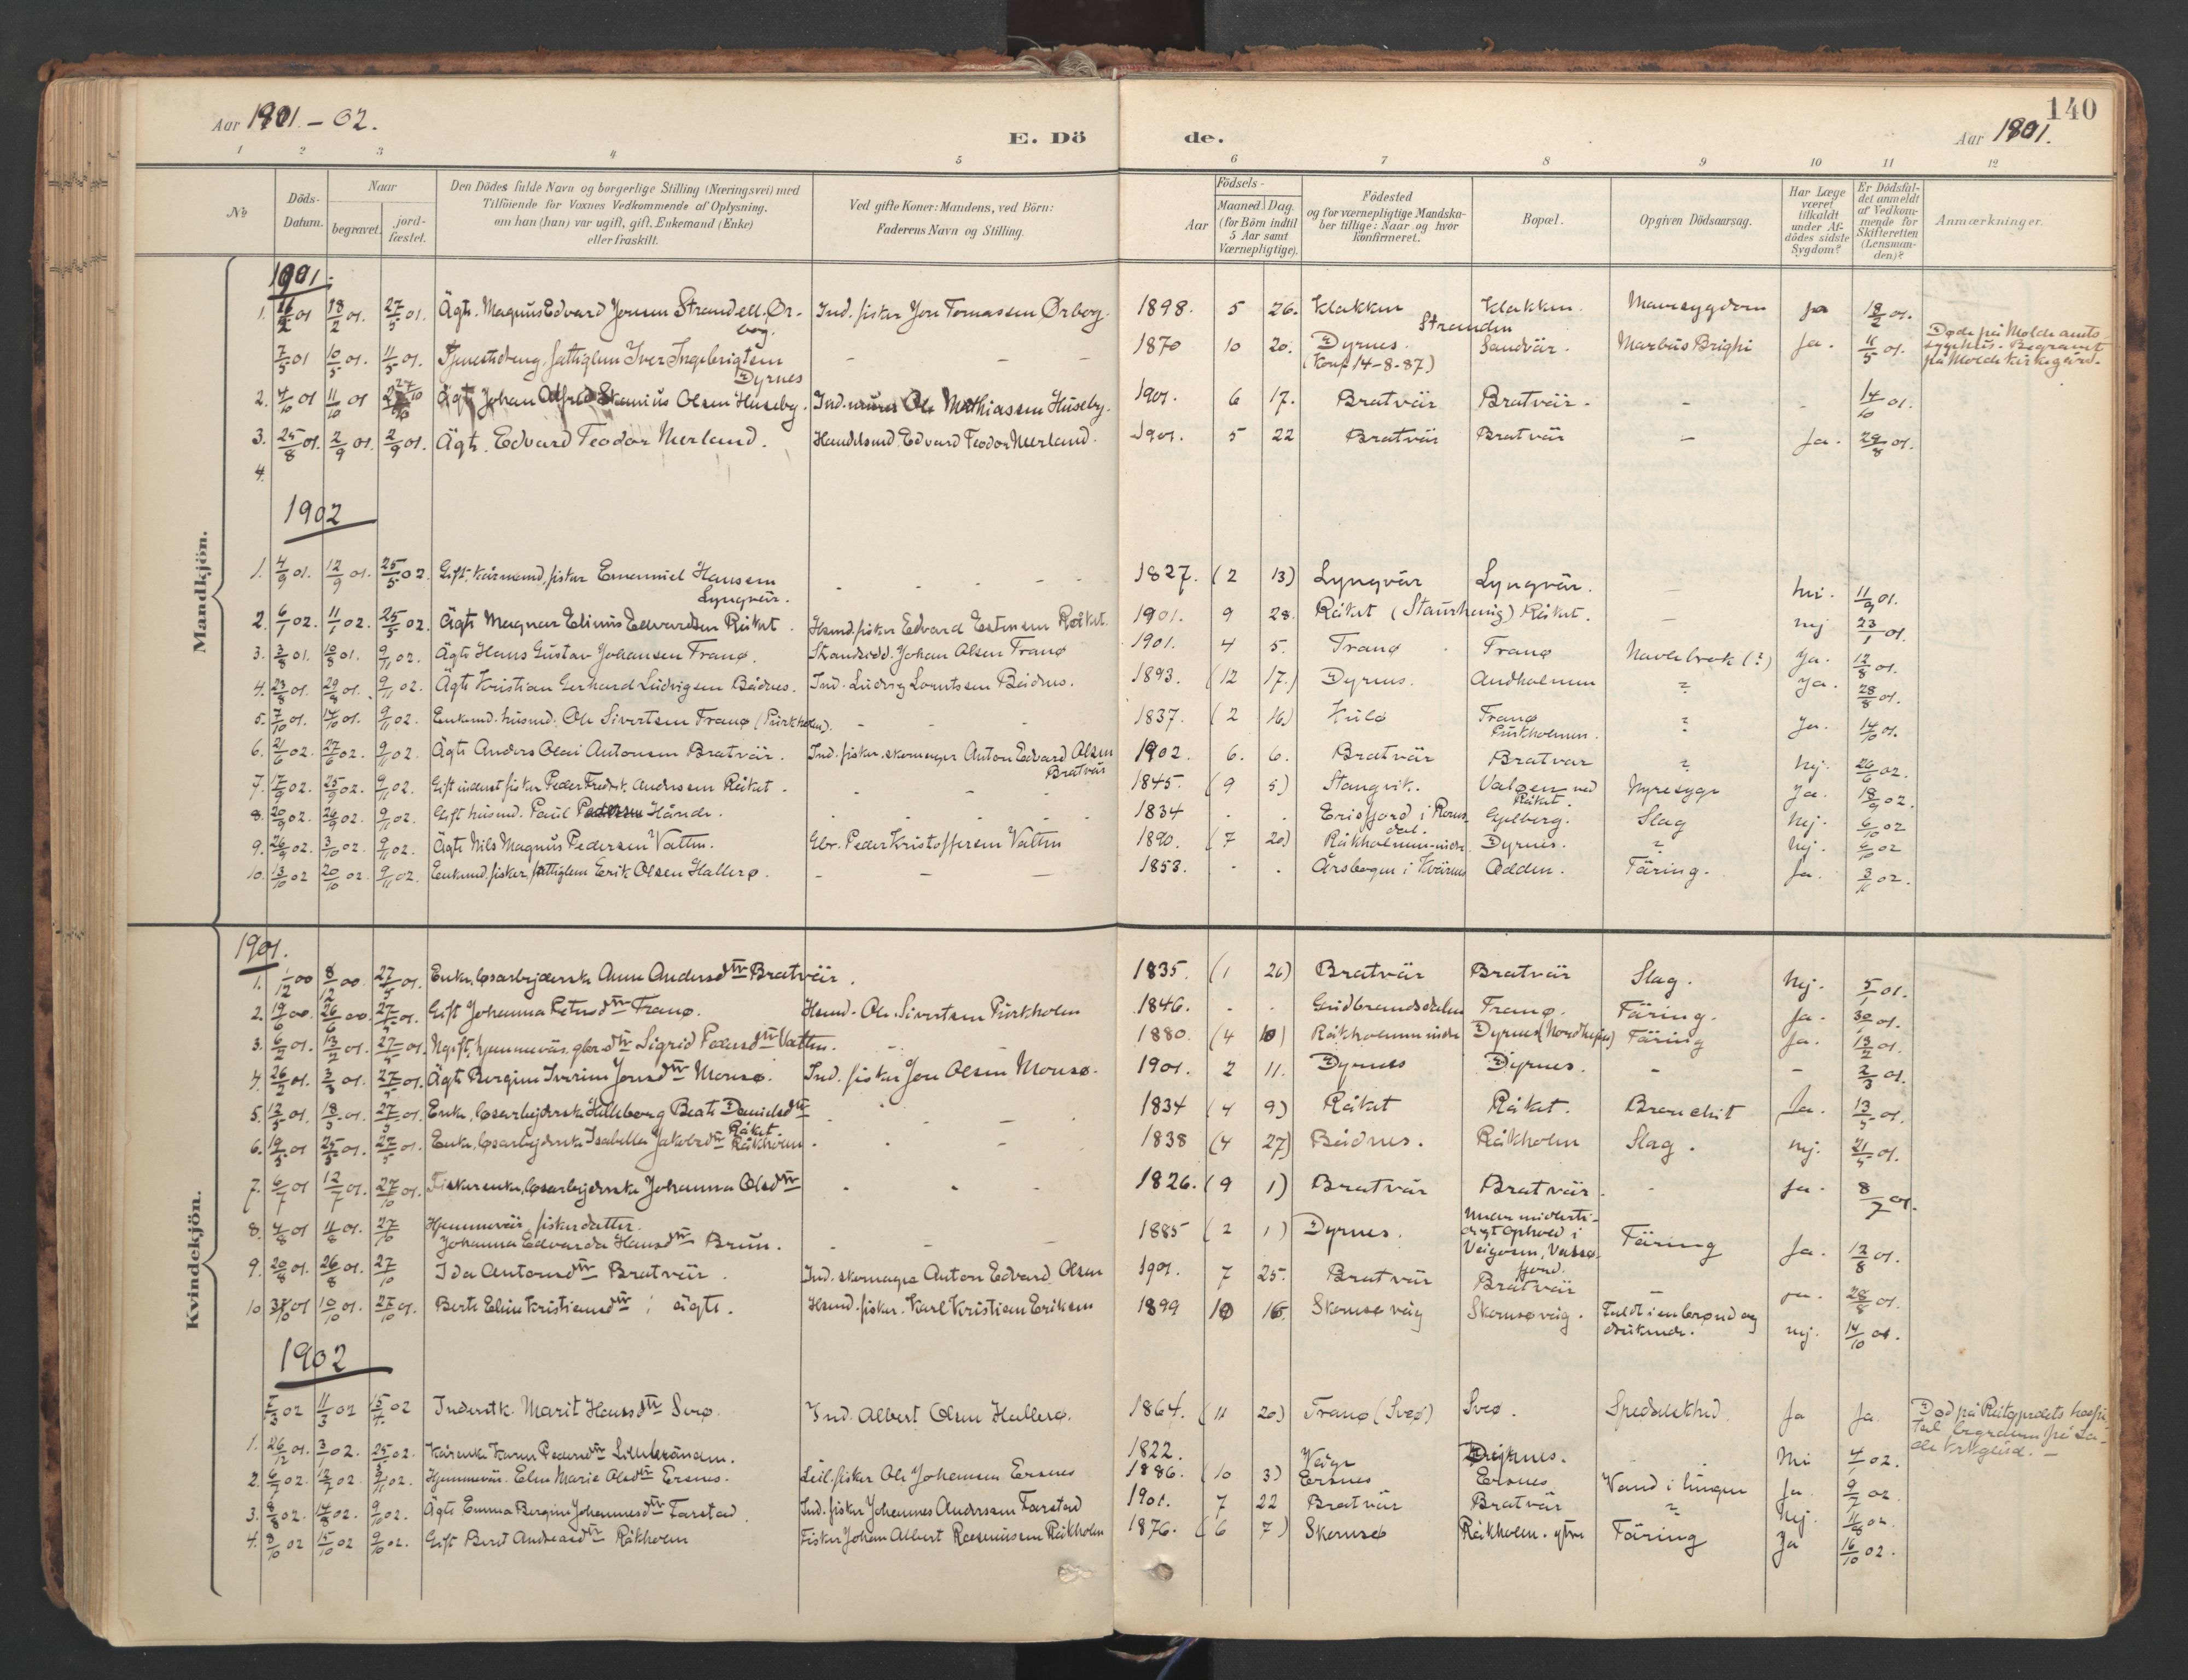 140
Aar 1901 - 02.
E. Döde.
Aar 1901.
1 2 3 4 5 6 7 8 9 10 11 12
No
Döds-Datum.
Naar
begravet.
jord-fæstet.
Den Dödes fulde Navn og borgerlige Stilling (Næringsvei) med
Tilföiende for Voxnes Vedkommende af Oplysning,
om han (hun) var ugift, gift, Enkemand (Enke)
eller fraskilt.
Ved gifte Koner: Mandens, ved Börn:
Faderens Navn og Stilling.
Födsels-
Aar
Maaned. Dag.
(for Börn indtil
5 Aar samt
Værnepligtige).
Födested
og for værnepligtige Mandska-
ber tillige: Naar og hvor
konfirmeret.
Bopæl.
Opgiven Dödsaarsag.
Har Læge
været
tilkaldt
under Af-
dödes sidste
Sygdom?
Er Dödsfal-
det anmeldt
af Vedkom-
mende for
Skifteretten
(Lensman-
den)?
Anmærkninger.
Mandkjön.
1901.
1. 16/2 01 18/2 01. 27/5 01. Ägte. Magnus Edvard Jonsen Strand ell. Ørborg. Ind. fisker Jon Tomassen Ørborg. 1898. 5 26. Klakken Stranden Klakken. Mavesygdom Ja 18/2 01.
7/5 01 10/5 01. 11/5 01. Tjenestedreng, fattiglem Iver Ingebrigtsen Dyrnes - - - 1870 10 20. Dyrnes. (Konf 14-8-87) Sandvär. Marbus Brighi Ja. 11/5 01. Døde på Molde amts sygehus. Begravet på Molde kirkegård.
2. 4/10 01 11/10 01 27/10 Ägte Johan Alfred Olsen Huseby. Ind. Ole Mathiassen Huseby. 1901. 6 17. Bratvär Bratvär. - - 14/10 01.
3. 25/8 01. 2/9 01. 2/9 01. Ägte. Edvard Teodor Nerland. Handelsmd. Edvard Teodor Nerland. 1901. 5 22 Bratvär Bratvär - Ja. 29/8 01.
4.
1902
1. 4/9 01. 12/9 01. 25/5 02. Gift, kårmand, fisker Emanuel Hansen Lyngvär. - - - 1827. (2 13) Lyngvär Lyngvär. - nei. 11/9 01.
2. 6/1 02. 11/1 02. 25/5 02. Ägte Magnar Elinius Edvardsen Råket. Husmd. fisker Edvard Estensen Råket. 1901. 9 28. Råket (Staurhaug) Råket. - nej 23/1 01.
3. 3/8 01. 10/8 01. 9/11 02. Ägte Hans Gustav Johansen Tranø. Strandsidd. Johan Olsen Tranø 1901. 4 5. Tranø Tranø Navlebrok (?) Ja. 12/8 01.
4. 23/8 01. 29/8 01. 9/11 02. Ägte Kristian Gerhard Ludvigsen Bådnes. Ind. Ludvig Lorntssen Bådnes. 1893. (12 17.) Dyrnes. Andholmen ? Ja. 28/8 01.
5. 7/10 01. 14/10 01. 9/11 02. Enkemd. husmd. Ole Sivertsen Tranø (Purkholm). - - 1837. (2 16) Kulø Tranø Purkholmen. ? Ja. 14/10 01.
6. 21/6 02. 27/6 02. 9/11 02. Ägte Anders Olai Antonsen Bratvär. Ind. fisker skomager Anton Edvard Olsen Bratvär 1902. 6. 6. Bratvär Bratvär ? Nej. 26/6 02.
7. 17/9 02. 25/9 02. 9/11 02. Gift inderst fisker Peder Fredrik Andersen Råket. - - - 1845. (9 5) Stangvik. Valøen ved Råket. Nyresyge Ja. 18/9 02.
8. 20/9 02. 29/9 02. 9/11 02. Gift husmd. Paul Pedersen Hånde. . . . 1834 . . Erisfjord i Romsdal. Gjelberg. Slag Nej. 6/10 02
9. 26/9 02. 3/10 02. 9/11 02. Ägte Nils Magnus Pedersen Vatten. Gbr. Peder Kristoffersen Vatten 1890. (7 20) Råkholmen nedre Dyrnes. ? Nej. 6/10 02
10. 13/10 02 20/10 02. 9/11 02. Enkemd. fisker, fattiglem Erik Olsen Hallerø. - - - 1853. - . Årsbogen i Kvärnes Odden. Täring. Ja. 3/11 02.
Kvindekjön.
1901.
1. 1/12 00 8/12 00 27/5 01. Enke, løsarbejderske Anne Andersdtr Bratvär. 1835. (1 26) Bratvär Bratvär Slag. Nej. 5/1 01.
2. 19/6 00. 26/6 00. 27/5 01. Gift Johanna Petersdtr Tranø. Husmd. Ole Sivertsen Purkholm 1846. - . Gudbrandsdalen Tranø. Täring. Ja. 30/1 01.
3. 6/2 01. 13/2 01. 27/5 01. Ugift, hjemmevär. gbr.dtr Sigrid Pedersdtr Vatten. - - 1880 (4 10) Råkholmen nedre Dyrnes (Nordheim) Täring Ja. 13/2 01.
4. 26/2 01. 3/3 01. 27/5 01. Ägte Bergine Iverine Jonsdtr Monsø. Ind. fisker Jon Olsen Monsø. 1901. 2 11. Dyrnes Dyrnes. - - 2/3 01.
5. 12/5 01. 18/5 01. 27/5 01. Enke, løsarbejderske Hilleborg Beate Danielsdtr Råket. - - - 1834 (4 9) Råket Råket. Bronchit Ja. 13/5 01.
6. 19/5 01 25/5 01. 27/5 01. Enke, løsarbejderske Isabella Jakobsdtr Råkholm - - - 1838 (4 27) Bådnes. Råkholm Slag. nej. 21/5 01.
7. 6/7 01 12/7 01. 27/10 01. Fiskerenke, løsarbejderske Johanna Olsdtr - - - 1826. (9 1) Bratvär Bratvär. - Ja. 8/7 01.
8. 4/8 01 11/8 01. 27/10 Hjemmevär. fiskerdatter. Johanna Edvarda Hansdtr Brun. - - - 1885 (2 1) Dyrnes. under midlertidigt ophold i Veigosen, Vassøfjord. Täring Ja. 12/8 01.
9. 20/8 01. 26/8 01. 27/10 Ida Antonsdtr Bratvär. Ind. skomager Anton Edvard Olsen 1901. 7 25. Bratvär Bratvär - Ja. 28/8 01.
10 3/10 01 10/10 01. 27/10 01. Berte Eline Kristiansdtr: ägte. Husmd. fisker. Karl Kristian Eriksen 1899 10 16. Skomsøvåg Skomsøvåg. Faldt i en brønd og druknede. nej. 14/10 01.
1902
5/3 02 11/3 02 15/4 02 Inderstk. Marit Hansdtr Sveø. Ind. Albert Olsen Hallerø. 1864. (11 20) Tranø (Sveø) Sveø. Spedalskhed Ja Ja Død på Reitgjerdets hospital, begraven på Lade kirkegård. -
1. 26/12 01. 3/1 02. 25/5 02. Kårenke Karen Pedersdtr Lillebränden. 1822. Våge Dyrnes. Nei 4/1 02.
2. 6/7 02. 12/7 02. 9/11 02. Hjemmevär. Eline Marie Olsdtr Ersnes. Leil. fisker Ole Johansen Ersnes 1886. (10 3) Ersnes Ersnes Vand i lungen Ja. 9/7 02.
3. 8/8 02. 14/8 02. 9/10 02. Ägte Emma Bergine Johannesdtr Farstad. Ind. fisker Johannes Andersen Farstad 1901. 7 22 Bratvär Bratvär ? Nej. 11/8 02.
4. 8/10 02 15/10 02 9/10 02. Gift Berit Andreasdtr Råkholm Fisker Johan Albert Rasmussen Råkholm 1876. (6 7) Skomsø Råkholm. ytre Täring Ja 16/10 02.